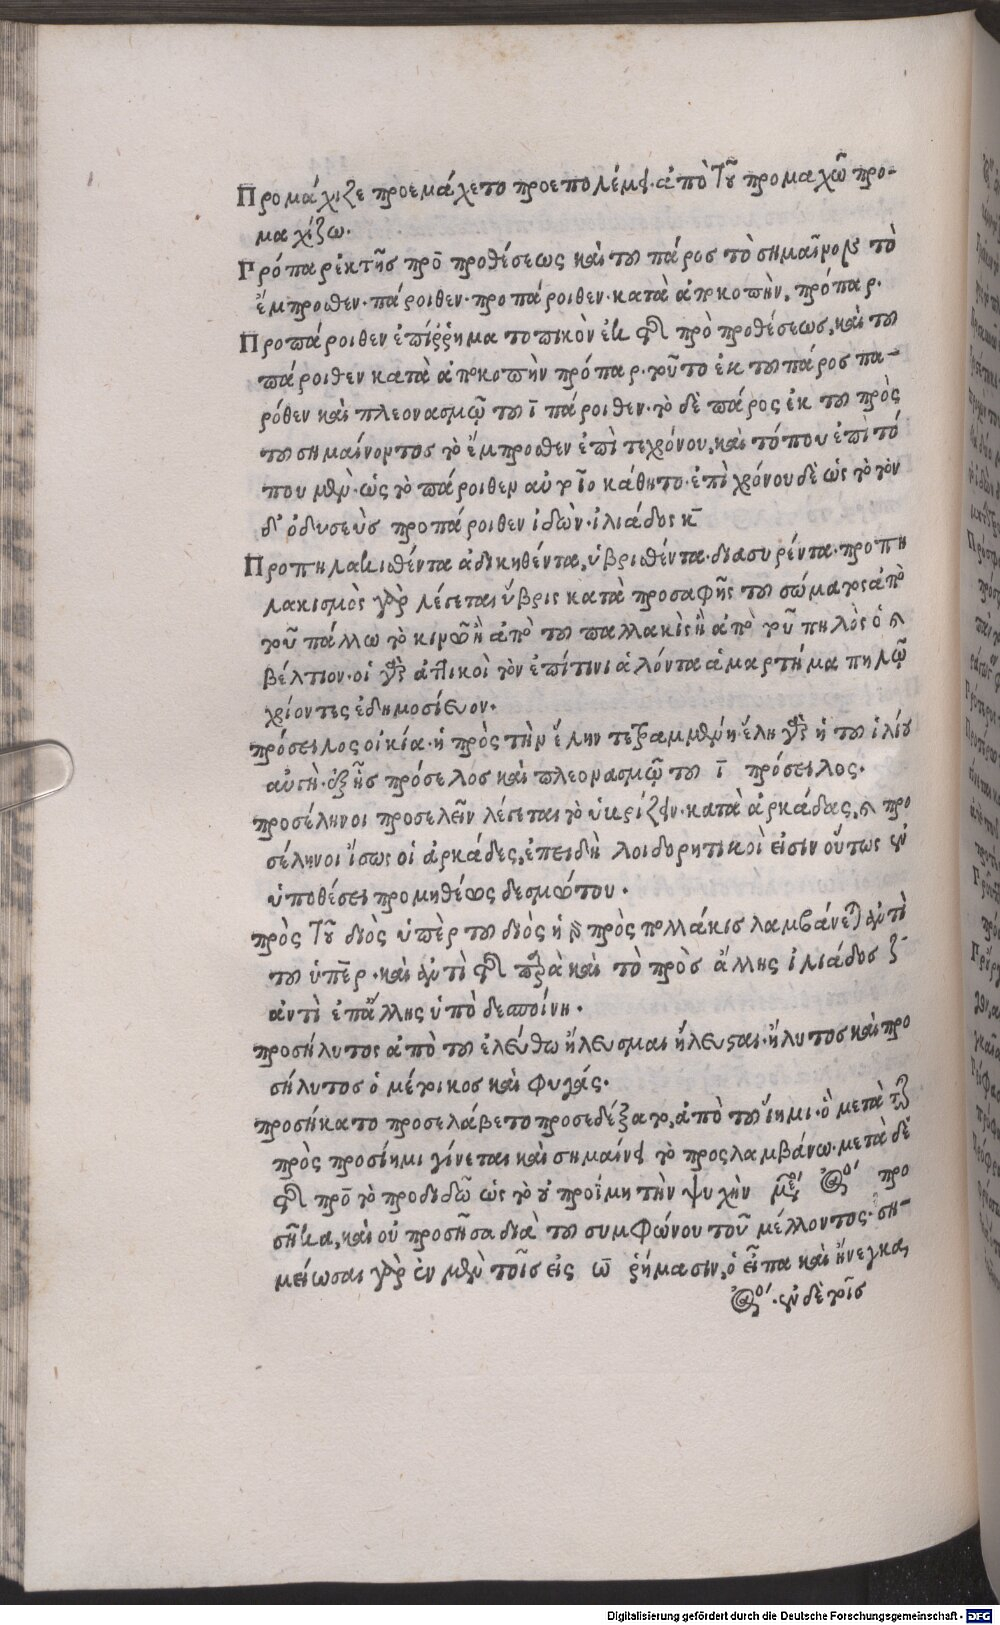 Προμάχιζε προεμάχετο προεπολέμει. ἀπὸ τοῦ προμαχῶ προ-
μαχίζω.
Πρόπαρ ἐκ τῆς πρὸ προθέσεως καὶ τοῦ πάρος τὸ σημαῖνον τὸ
ἔμπροσθεν. πάροιθεν. προπάροιθεν. κατὰ ἀποκοπὴν, πρόπαρ.
Προπάροιθεν ἐπίρρημα τοπικὸν ἐκ τῆς πρὸ προθέσεως, καὶ τοῦ
πάροιθεν κατὰ ἀποκοπὴν πρόπαρ. τοῦτο ἐκ τοῦ πάρος πα-
ρόθεν καὶ πλεονασμῷ τοῦ ῑ πάροιθεν. τὸ δὲ πάρος ἐκ τοῦ πρὸς
τοῦ σημαίνοντος τὸ ἔμπροσθεν ἐπὶ τε χρόνου, καὶ τόπου ἐπὶ τό
που μὲν. ὡς τὸ πάροιθεν αὐτοῖο κάθητο. ἐπὶ χρόνου δὲ ὡς τὸ τὸν
δ' ὀδυσεὺς προπάροιθεν ἰδὼν. ἰλιάδος κ̄
Προπηλακισθέντα ἀδικηθέντα, ὑβρισθέντα. διασυρέντα. προπη
λακισμὸς γὰρ λέγεται ὕβρις κατὰ προσαφῆς τοῦ σώματος ἀπὸ
τοῦ πάλλω τὸ κινῶ ἢ ἀπὸ τοῦ παλλακὶς ἢ ἀπὸ τοῦ πηλὸς ὃ καὶ
βέλτιον. οἱ γὰρ ἀττικοὶ τὸν ἐπίτινι ἁλόντα ἁμαρτήμα πηλῷ
χρίοντες ἐδημοσίευον.
πρόσειλος οἰκία. ἡ πρὸς τὴν ἕλην τετραμμένη ἕλη γὰρ ἡ τοῦ ἡλίου
αὐγὴ. ἐξ ἧς πρόσελος καὶ πλεονασμῷ τοῦ ῑ πρόσειλος.
προσέληνοι προσελεῖν λέγεται τὸ ὑβρίζειν. κατὰ ἀρκάδας, καὶ προ
σέληνοι ἴσως οἱ ἀρκάδες, ἐπειδὴ λοιδορητικοὶ εἰσιν οὕτως ἐν
ὑποθέσει προμηθέως δεσμώτου.
πρὸς τοῦ διὸς ὑπὲρ τοῦ διὸς ἡ δὲ πρὸς πολλάκις λαμβάνεται ἀντὶ
τοῦ ὑπὲρ. καὶ ἀντὶ τῆς παρὰ καὶ τὸ πρὸς ἄλλης ἰλιάδος ζ̄
ἀντὶ ἐπ' ἄλλης ὑπὸ δεσποίνη.
προσήλυτος ἀπὸ τοῦ ἐλεύθω ἤλευσμαι ἤλευσαι. ἤλυτος καὶ προ
σήλυτος ὁ μέτοικος καὶ φυγάς.
προσήκατο προσελάβετο προσεδέξατο, ἀπὸ τοῦ ἵημι. ὃ μετὰ τῆς
πρὸς προσίημι γίνεται καὶ σημαίνει τὸ προσλαμβάνω. μετὰ δὲ
τῆς πρὸ τὸ προδιδῶ ὡς τὸ οὐ προΐμη τὴν ψυχὴν προ
σῆκα, καὶ οὐ προσῆσα διὰ τοῦ συμφώνου τοῦ μέλλοντος. ση-
μείωσαι γὰρ ἐν μὲν τοῖς εἰς ω̄ ῥήμασιν, ὁ εἶπα καὶ ἤνεγκα,
ἐν δὲ τοῖς
Digitalisierung gefördert durch die Deutsche Forschungsgemeinschaft - DFG